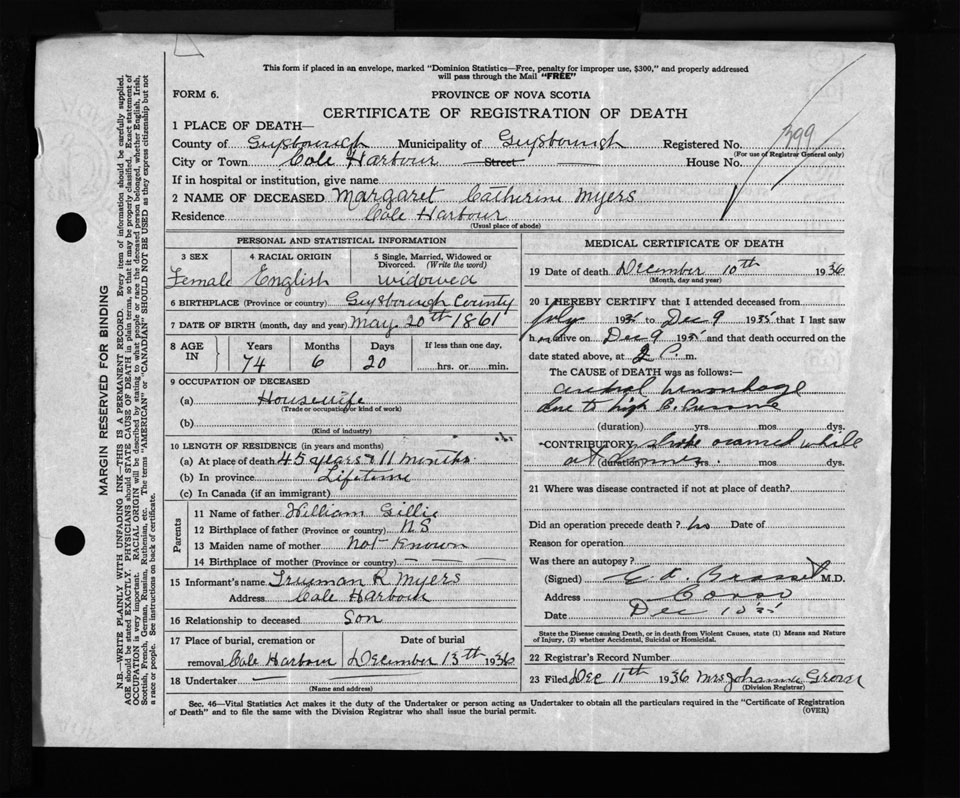 This form if placed in an envelope, marked "Dominion Statistics—Free, penalty for improper use, $300," and properly addressed
will pass through the Mail "FREE"
FORM 6.
PROVINCE OF NOVA SCOTIA
CERTIFICATE OF REGISTRATION OF DEATH
1 PLACE OF DEATH—
County of Guysborough Municipality of Guysborough Registered No. 399
(For use of Registrar General only)
City or Town Cole Harbour Street House No.
If in hospital or institution, give name
2 NAME OF DECEASED Margaret Catherine Myers
Residence Cole Harbour
(Usual place of abode)
PERSONAL AND STATISTICAL INFORMATION
3 SEX 4 RACIAL ORIGIN 5 Single, Married, Widowed or
Divorced. (Write the word)
Female English widowed
6 BIRTHPLACE (Province or country) Guysborough County
7 DATE OF BIRTH (month, day and year) May 20th 1861
8 AGE IN Years Months Days If less than one day,
74 6 20 hrs. or min.
9 OCCUPATION OF DECEASED
(a) Housewife
(Trade or occupation or kind of work)
(b)
(Kind of industry)
10 LENGTH OF RESIDENCE (in years and months)
(a) At place of death 45 years & 11 months
(b) In province Lifetime
(c) In Canada (if an immigrant)
Parents
11 Name of father William Gillie
12 Birthplace of father (Province or country) N.S
13 Maiden name of mother Not Known
14 Birthplace of mother (Province or country)
15 Informant's name Truman R Myers
Address Cole Harbour
16 Relationship to deceased Son
17 Place of burial, cremation or Date of burial
removal Cole Harbour December 13th 1936
18 Undertaker
(Name and address)
MEDICAL CERTIFICATE OF DEATH
19 Date of death December 10th 1936
(Month, day and year)
20 I HEREBY CERTIFY that I attended deceased from
July 1935 to Dec 9 1935 that I last saw
h er alive on Dec 9 1935 and that death occurred on the
date stated above, at 2 P. m.
The CAUSE of DEATH was as follows:—
cerebral hemorrhage
due to high B. Pressure
(duration) yrs. mos. dys.
CONTRIBUTORY stroke occurred while
at
(duration) yrs. mos. dys.
21 Where was disease contracted if not at place of death?
Did an operation precede death? no Date of
Reason for operation
Was there an autopsy?
(Signed) M.D.
Address Canso
Date Dec 10
State the Disease causing Death, or in death from Violent Causes, state (1) Means and Nature
of Injury, (2) whether Accidental, Suicidal or Homicidal.
22 Registrar's Record Number
23 Filed Dec 11th 1936 Mrs Johanna
(Division Registrar)
Sec. 46—Vital Statistics Act makes it the duty of the Undertaker or person acting as Undertaker to obtain all the particulars required in the "Certificate of Registration
of Death" and to file the same with the Division Registrar who shall issue the burial permit.
(OVER)
MARGIN RESERVED FOR BINDING
N.B.—WRITE PLAINLY WITH UNFADING INK—THIS IS A PERMANENT RECORD. Every item of information should be carefully supplied.
AGE should be stated EXACTLY. PHYSICIANS should STATE CAUSE OF DEATH in plain terms, so that it may be properly classified. Exact statement of
OCCUPATION is very important. RACIAL ORIGIN will be described by stating to what people or race the deceased person belonged, whether English, Irish,
Scottish, French, German, Russian, Ruthenian, etc. The terms "AMERICAN" or "CANADIAN" SHOULD NOT BE USED as they express citizenship but not
a race or people. See instructions on back of certificate.